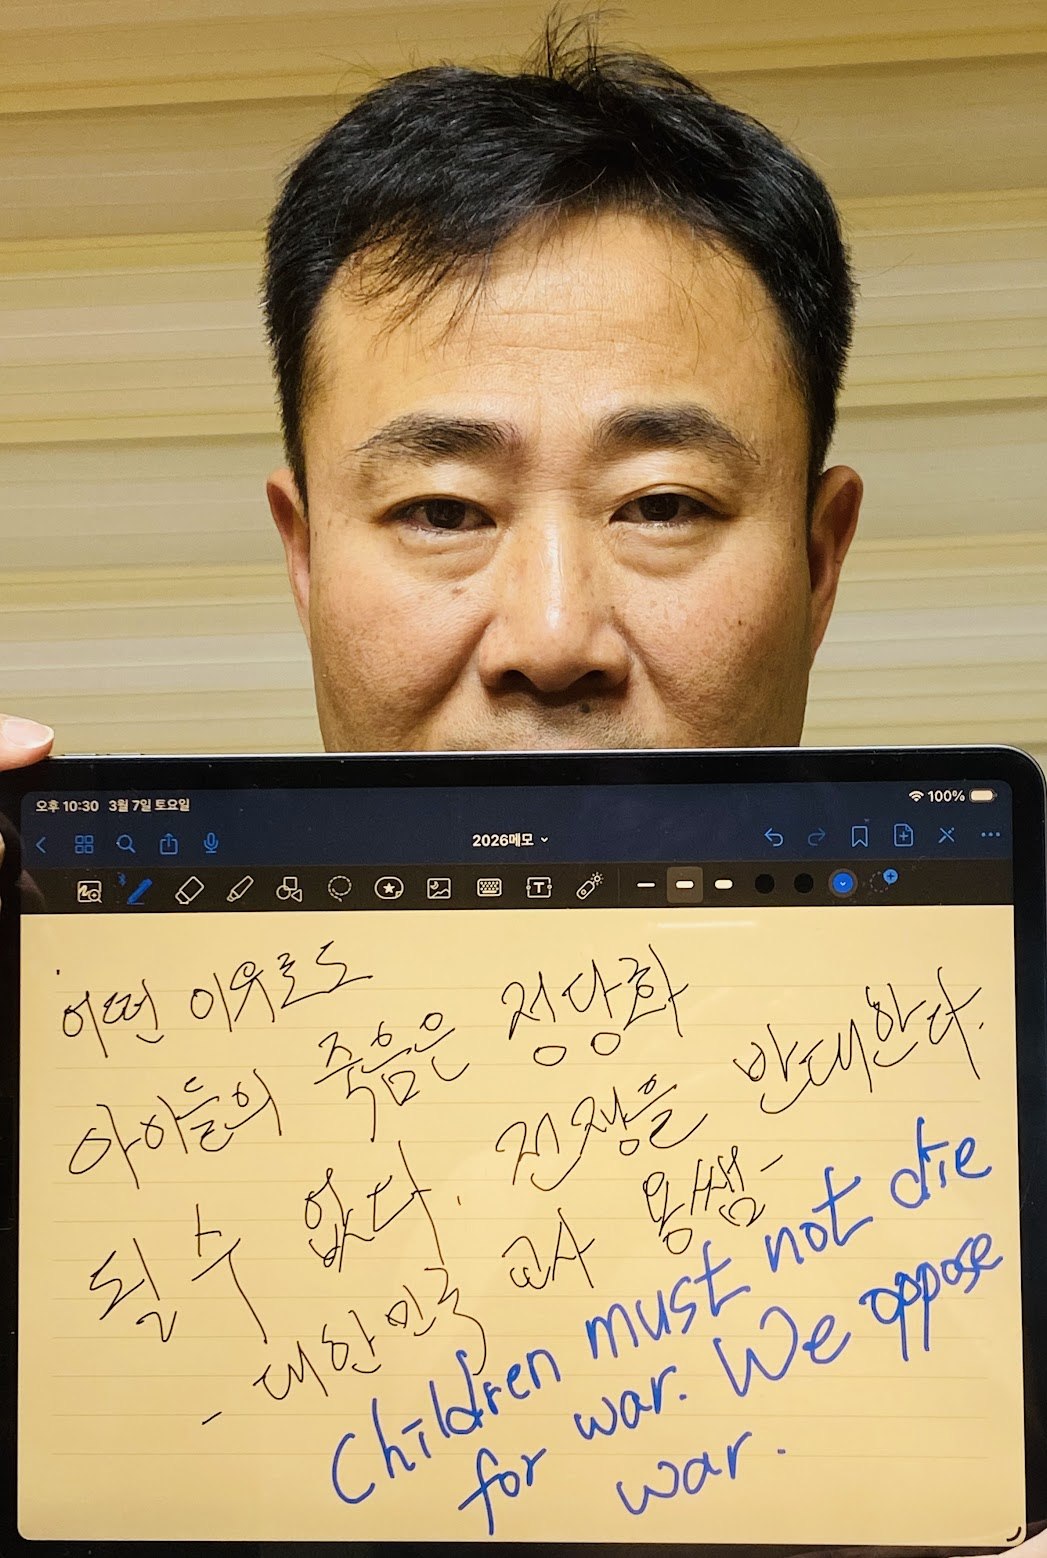 오후 10:30 3월 7일 토요일
100%
2026메모
어떤 이유로도
아이들의 죽음은 정당화
될 수 없다. 전쟁을 반대한다.
- 대한민국 교사 용쌤 -
Children must not die
for war. We oppose
war.